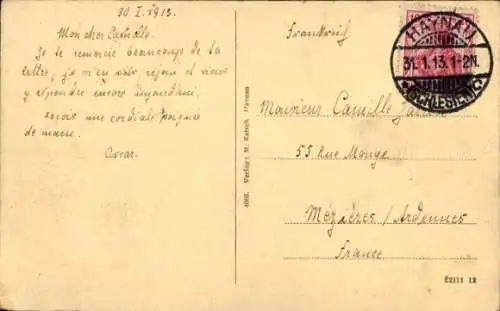 30. I. 1913.
Mon cher Camille.
Je te remercie beaucoup de ta
lettre, je m'en suis réjoui et veux
y répondre encore aujourd'hui.
reçois une cordiale poignée
de main.
Oscar.
Frankreich
HAYNAU
31.1.13.1-2N.
(SCHLESIEN)
Monsieur Camille
55 Rue Monge
Mézières / Ardennes
France
Verlag:
E2111 12